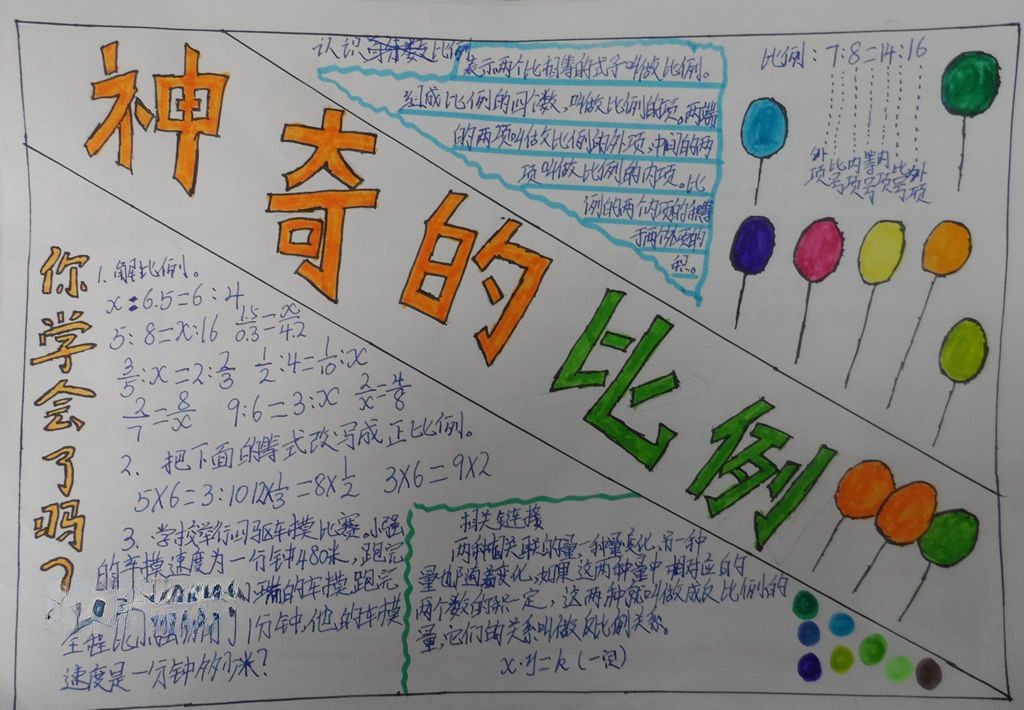 神奇的比例
认识比例
表示两个比相等的式子叫做比例。
组成比例的四个数,叫做比例的项。两端
的两项叫做比例的外项,中间的两
项叫做比例的内项。比
例的两个内项的积等
于两个外项的
积。
比例:7:8=14:16
外项 比号 内项 等号 内项 比号 外项
你学会了吗?
1.解比例。
x:6.5=6:4
5:8=x:16 1.5/0.3=x/42
3/5:x=2:2/3 1/2:4=1/10:x
2/7=8/x 9:6=3:x 2/x=4/8
2、把下面的等式改写成正比例。
5X6=3:10 12X1/3=8X1/2 3X6=9X2
3、学校举行四驱车模比赛。小强
的车模速度为一分钟480米,跑完
的车模跑完
全程比小强 了1分钟,他的车模
速度是一分钟多少米?
相关链接
两种相关联的量,一种量变化,另一种
量也随着变化,如果这两种量中相对应的
两个数的积一定,这两种就叫做成反比例的
量,它们的关系叫做反比例关系。
x·y=k(一定)